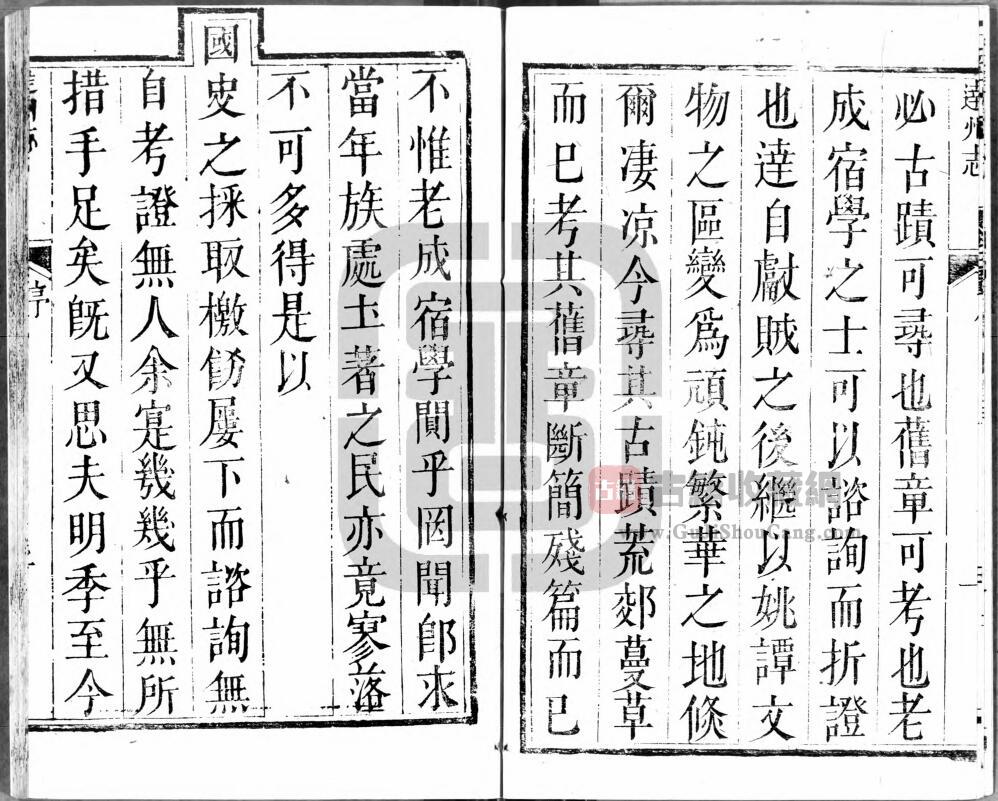 達州志
必古蹟可尋也舊章可考也老
成宿學之士可以諮詢而折證
也達自獻賊之後繼以姚譚文
物之區變為頑鈍繁華之地倏
爾凄凉今尋其古蹟荒郊蔓草
而已考其舊章斷簡殘篇而已
不惟老成宿學闃乎罔聞卽求
當年族處土著之民亦竟寥落
不可多得是以
國史之採取檄飭屢下而諮詢無
自考證無人余寔幾幾乎無所
措手足矣旣又思夫明季至今
序
古籍收藏網
www.GujiShouCang.com